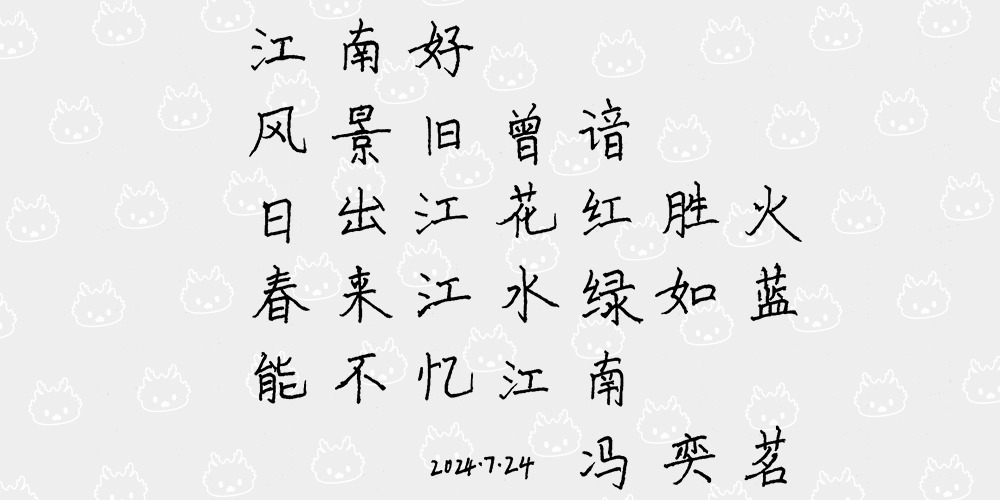 江南好
风景旧曾谙
日出江花红胜火
春来江水绿如蓝
能不忆江南
2024.7.24 冯奕茗